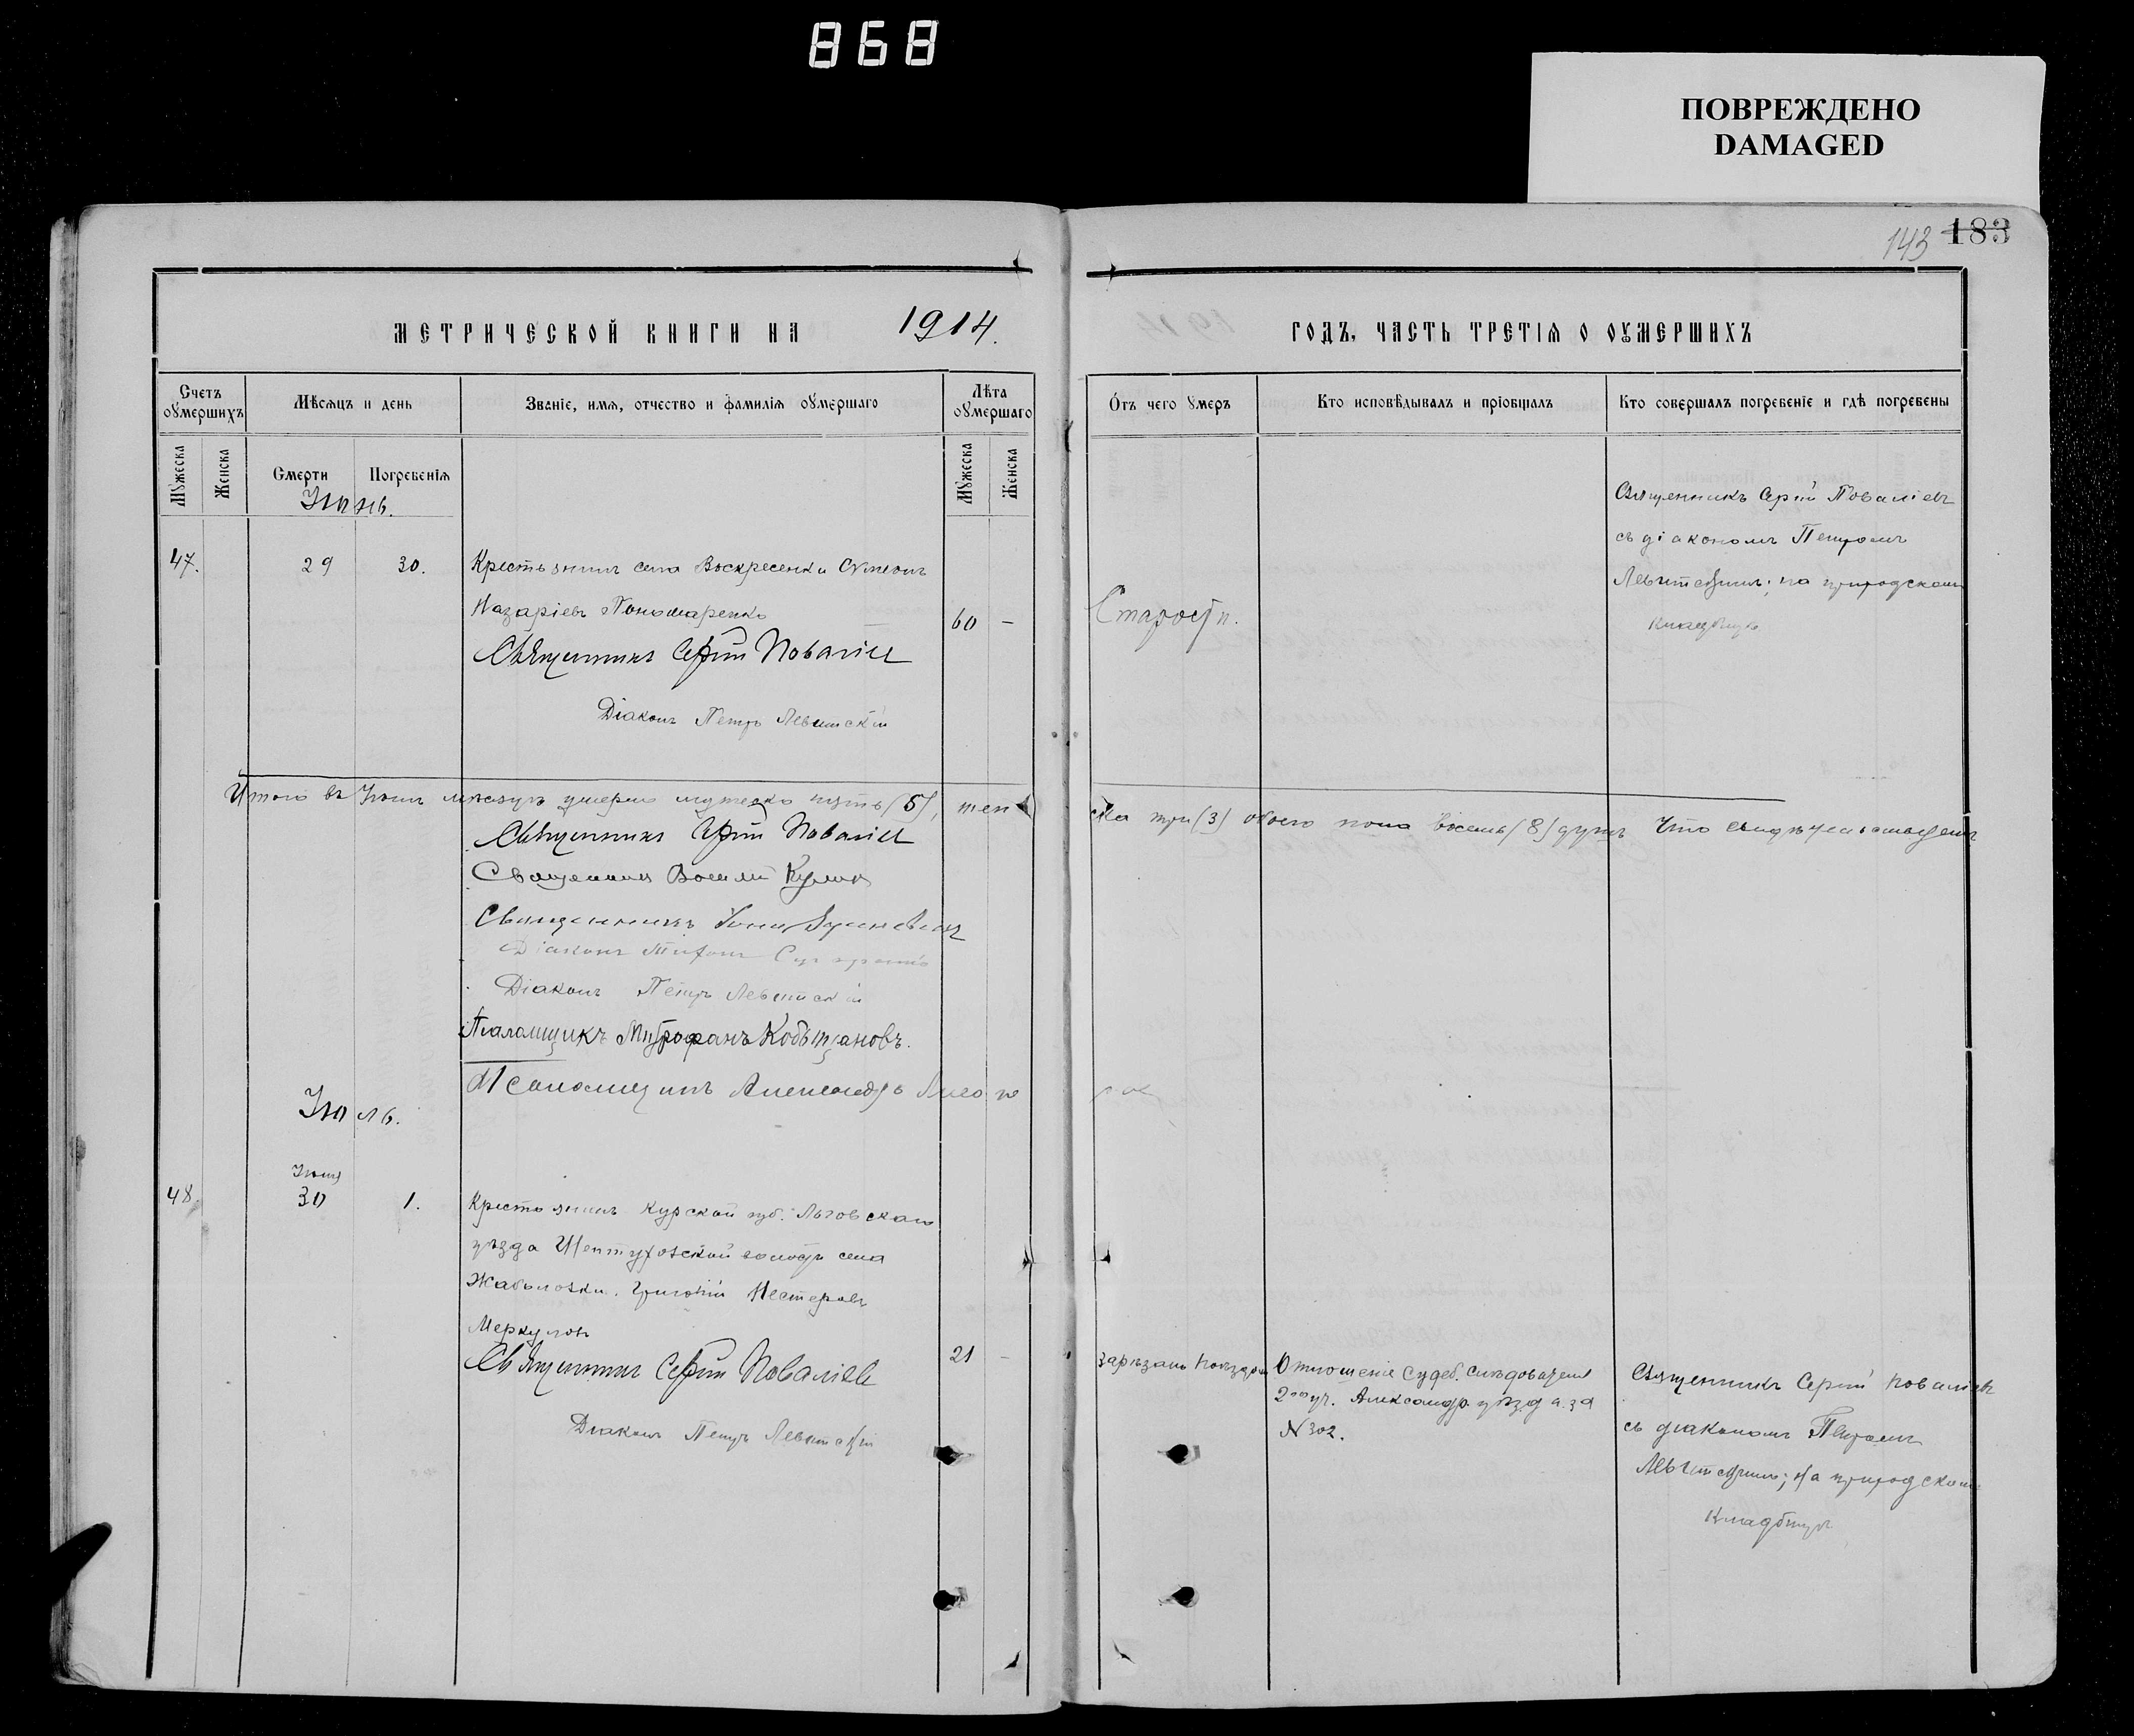 868
ПОВРЕЖДЕНО
DAMAGED
143 183
МЕТРИЧЕСКОЙ КНИГИ НА 1914.
ГОДЪ, ЧАСТЬ ТРЕТІѦ О ОУМЕРШИХЪ
Счетъ оумершихъ
Мѣсѧцъ и день
Званіе, имѧ, отчество и фамиліѧ оумершаго
Лѣта оумершаго
Отъ чего умеръ
Кто исповѣдывалъ и пріобщалъ
Кто совершалъ погребеніе и гдѣ погребены
Мужеска
Женска
Смерти
Погребеніѧ
Мужеска
Женска
Іюнь.
47.
29
30.
Крестьянинъ села Воскресенки Сѵмеонъ
Назаріевъ Пономаренко
60 –
Старости.
Священникъ Сергій Поваліевъ
съ діакономъ Петромъ
Левитскимъ; на приходскомъ
кладбищѣ
Священникъ Сергій Поваліевъ
Діаконъ Петръ Левитскій
Итого въ Іюнѣ мѣсяцѣ умерло мужеска пять (5), жен
ска три (3) обоего пола восемь (8) душъ Что свидѣтельствуемъ
Священникъ Сергій Поваліевъ
Священникъ Василій
Священникъ
Діаконъ Тихонъ
Діаконъ Петръ Левитскій
Псаломщикъ Митрофанъ Кобыщановъ.
Псаломщикъ Александръ
Іюль.
Іюня
48.
30
1.
Крестьянинъ Курской губ. Льговскаго
уѣзда волости села
Григорій Нестеровъ
Меркуловъ
21 –
зарѣзанъ поѣздомъ
Отношеніе Судеб. слѣдователя
2го уч. Александр. уѣзда за
№ 302.
Священникъ Сергій Поваліевъ
съ діакономъ Петромъ
Левитскимъ; на приходскомъ
кладбищѣ
Священникъ Сергій Поваліевъ
Діаконъ Петръ Левитскій